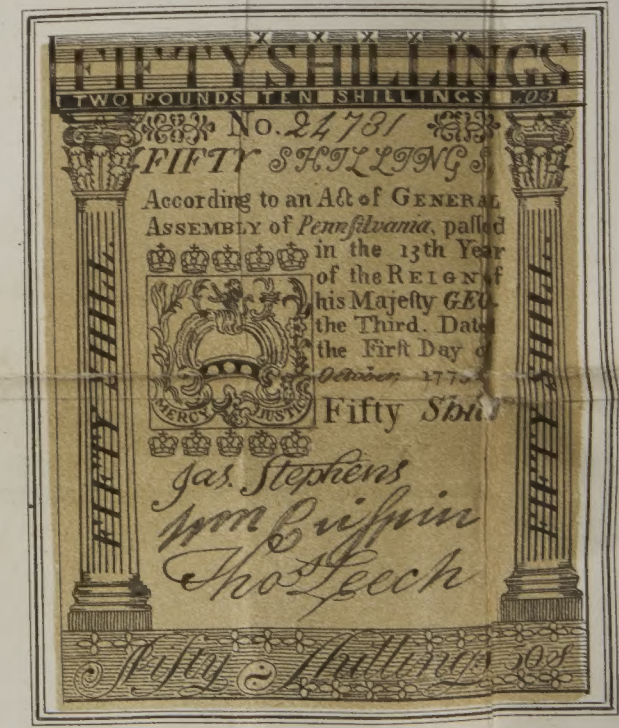 FIFTY SHILLINGS
TWO POUNDS TEN SHILLINGS 50S
No. 24731
FIFTY SHILLINGS
According to an Act of GENERAL
ASSEMBLY of Pennſilvania, paſſed
in the 13th Year
of the REIGN of
his Majeſty GEO.
the Third. Dated
the Firſt Day of
October, 177
MERCY JUSTICE
Fifty Shill
FIFTY SHILL.
FIFTY SHILL.
Jas. Stephens
Wm Criſpin
Thos Leech
Fifty Shillings 50s